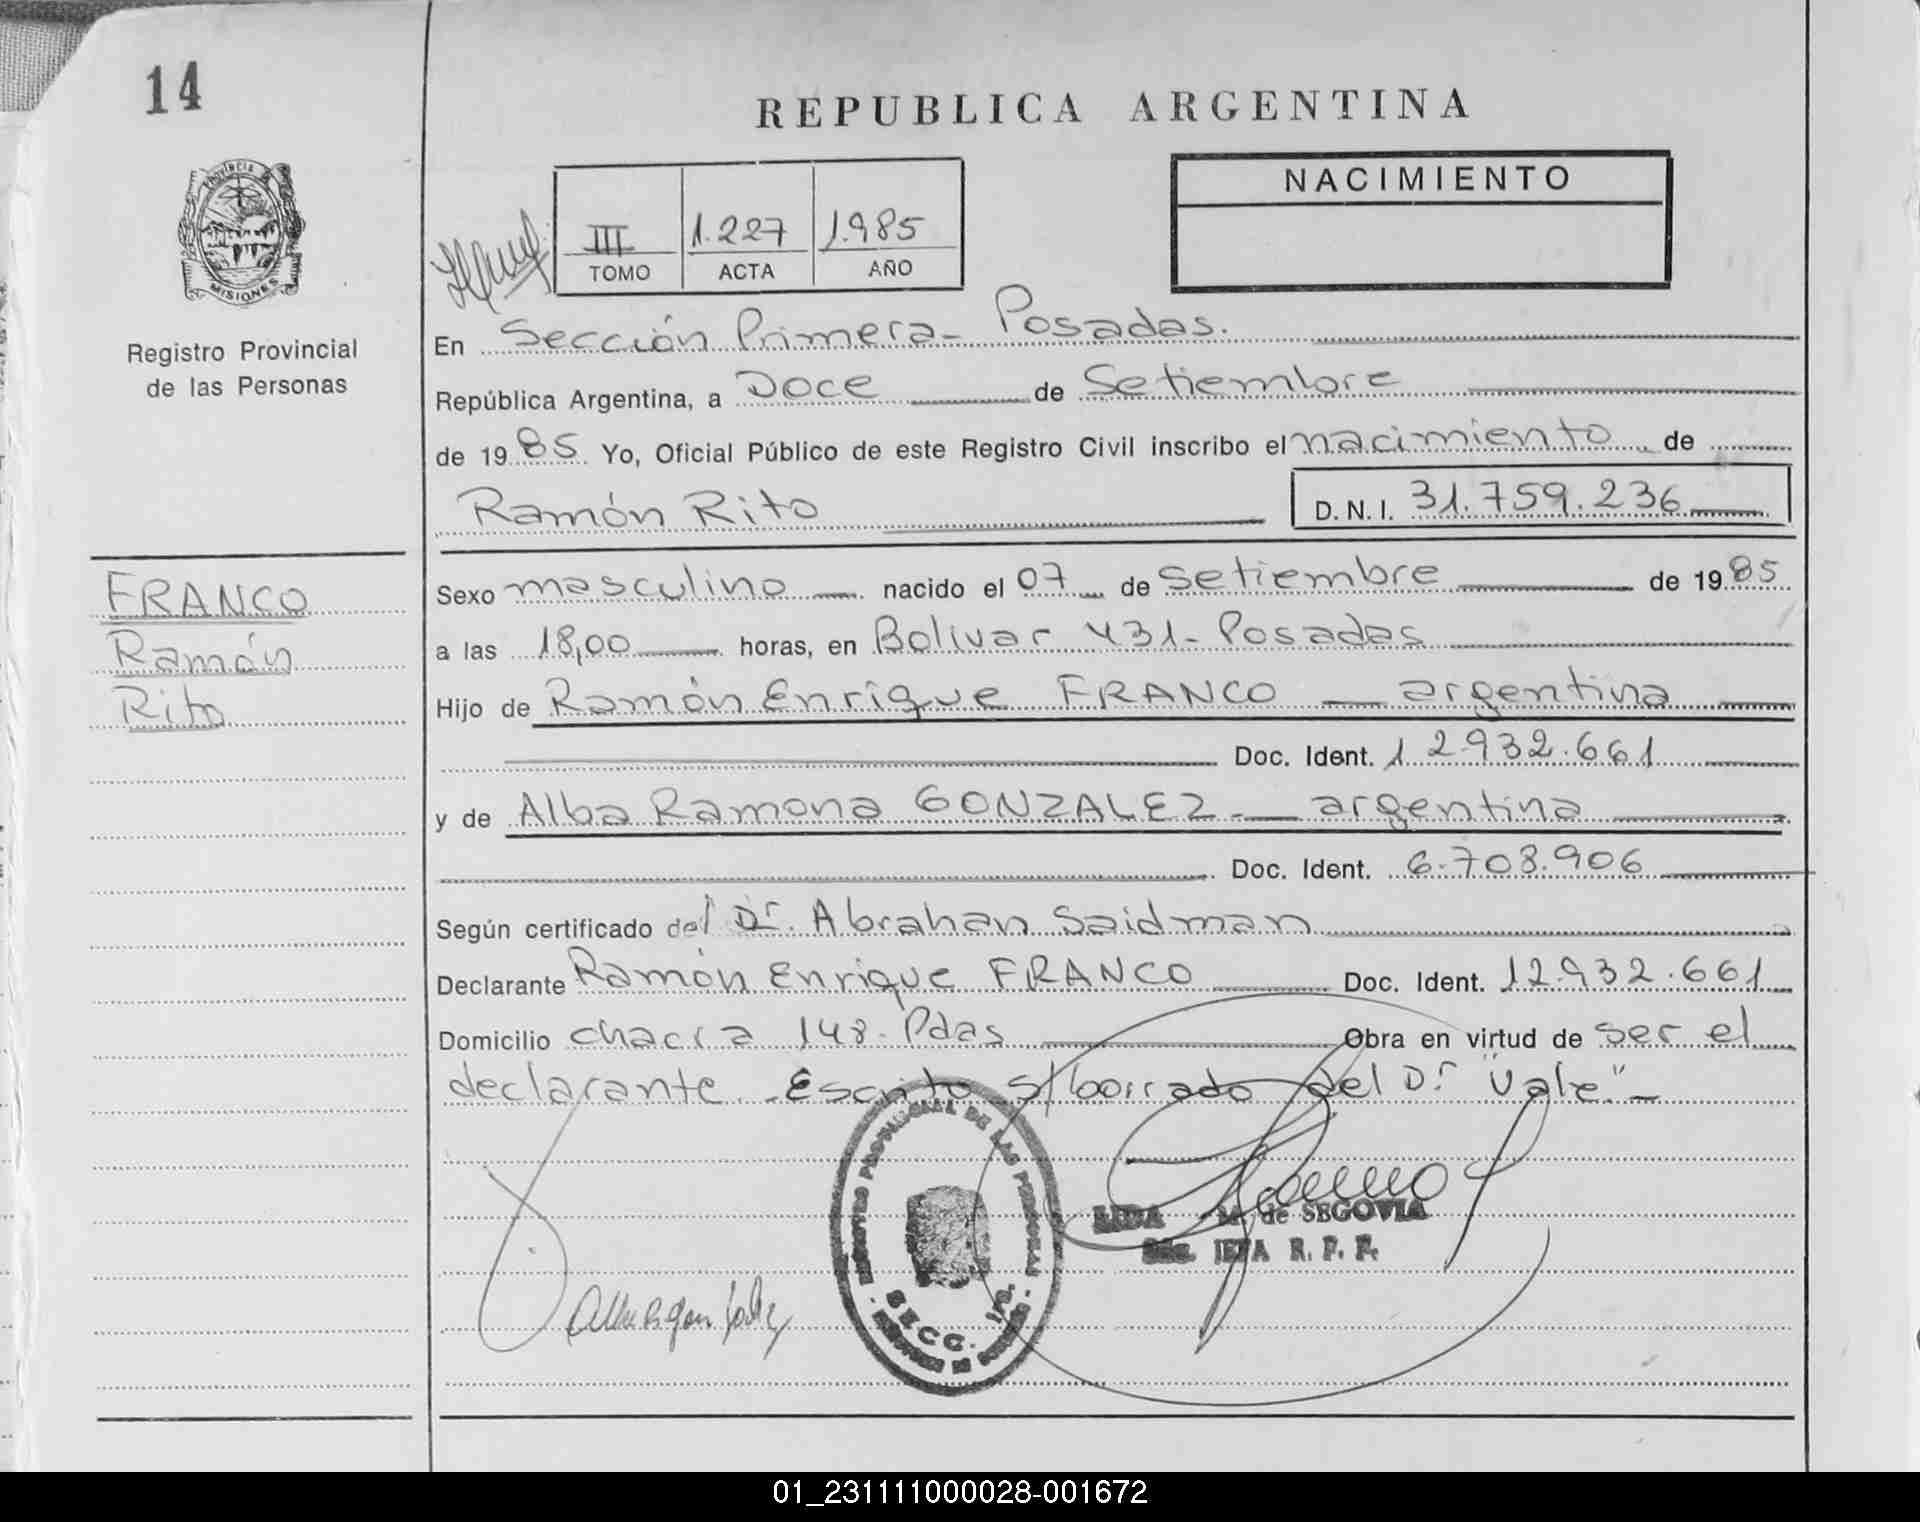 14
REPUBLICA ARGENTINA
Provincia de
MISIONES
Registro Provincial
de las Personas
III 1.227 1.985
TOMO ACTA AÑO
NACIMIENTO
En Sección Primera - Posadas.
República Argentina, a Doce de Setiembre
de 1985 Yo, Oficial Público de este Registro Civil inscribo el nacimiento de
Ramón Rito D.N.I. 31.759.236
FRANCO
Ramón
Rito
Sexo masculino nacido el 07 de Setiembre de 1985
a las 18,00 horas, en Bolivar 431 - Posadas
Hijo de Ramón Enrique FRANCO — argentina
Doc. Ident. 12.932.661
y de Alba Ramona GONZALEZ - argentina
Doc. Ident. 6.708.906
Según certificado del Dr. Abrahan Saidman
Declarante Ramón Enrique FRANCO Doc. Ident. 12.932.661
Domicilio chacra 148 - Pdas Obra en virtud de ser el
declarante. Escrito s/borrado del Dr "Vale" -
REGISTRO PROVINCIAL DE LAS PERSONAS
SECC. 1RA.
LIDA M. de SEGOVIA
JEFA R. P. P.
01_231111000028-001672